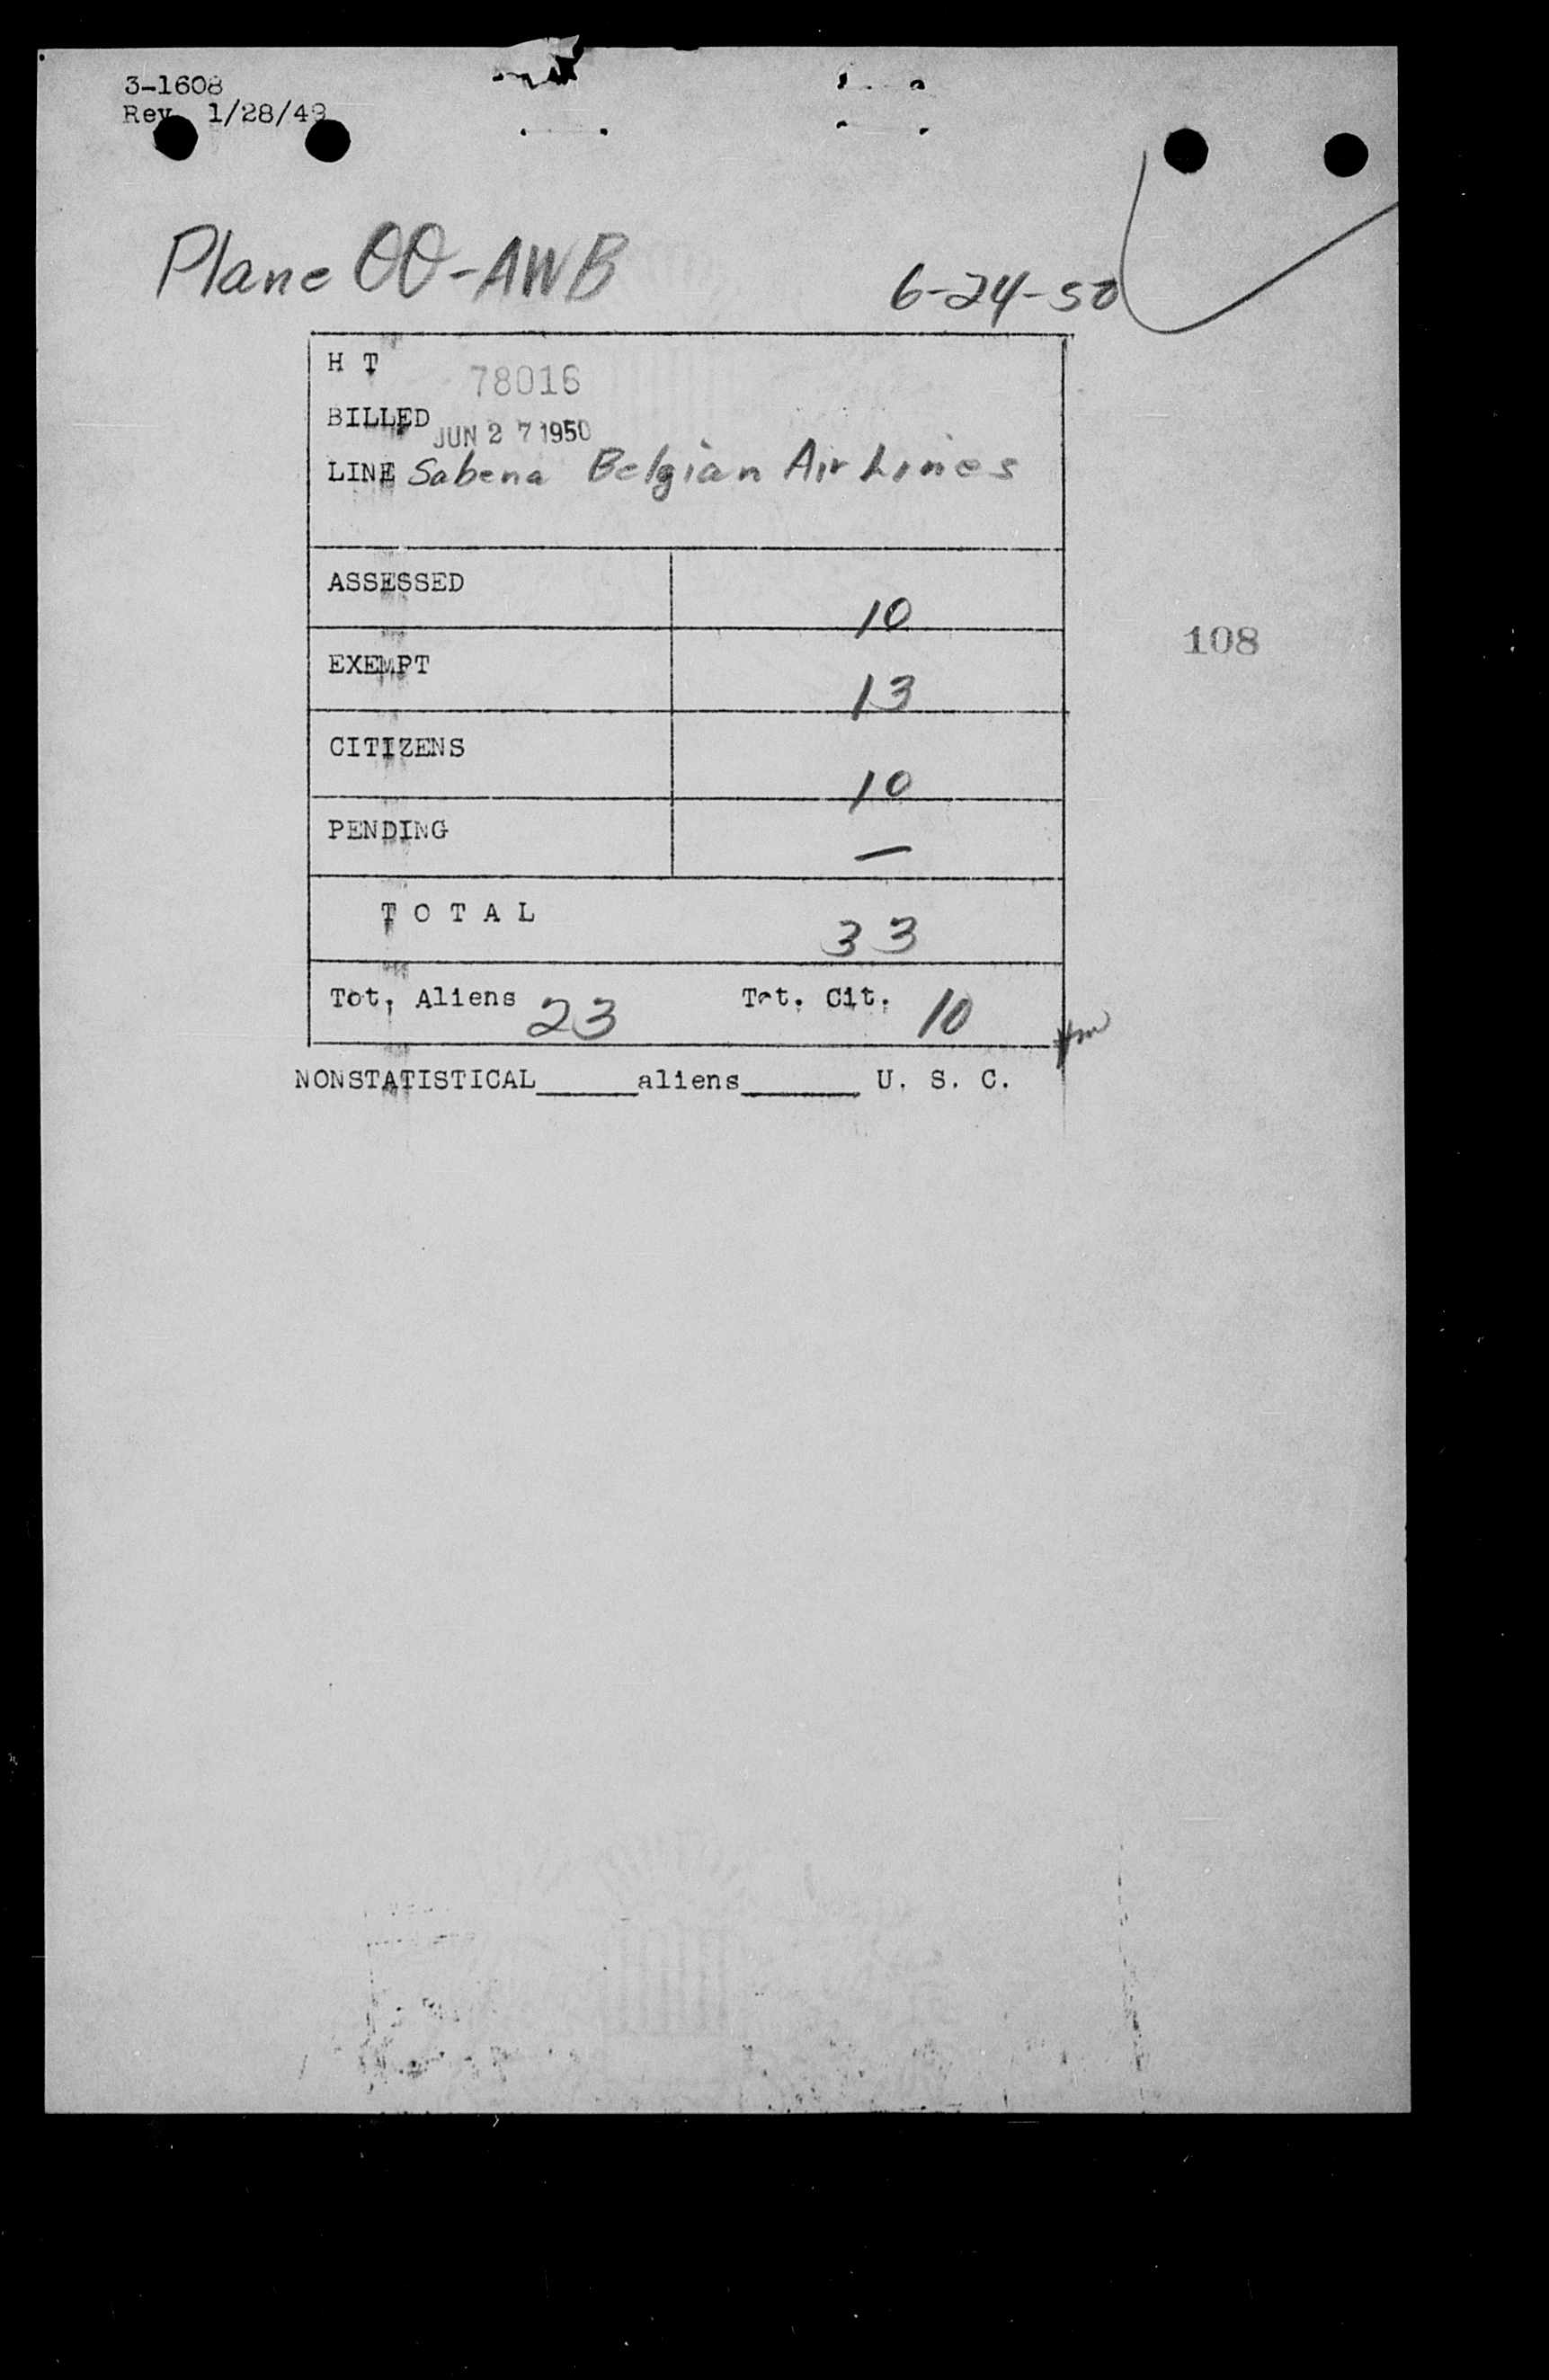 3-1608
Rev. 1/28/49
Plane OO-AWB
6-24-50
H T 78016
BILLED JUN 27 1950
LINE Sabena Belgian Air Lines
ASSESSED 10
EXEMPT 13
108
CITIZENS 10
PENDING —
TOTAL 33
Tot. Aliens 23 Tot. Cit. 10
NONSTATISTICAL______aliens_______ U. S. C.